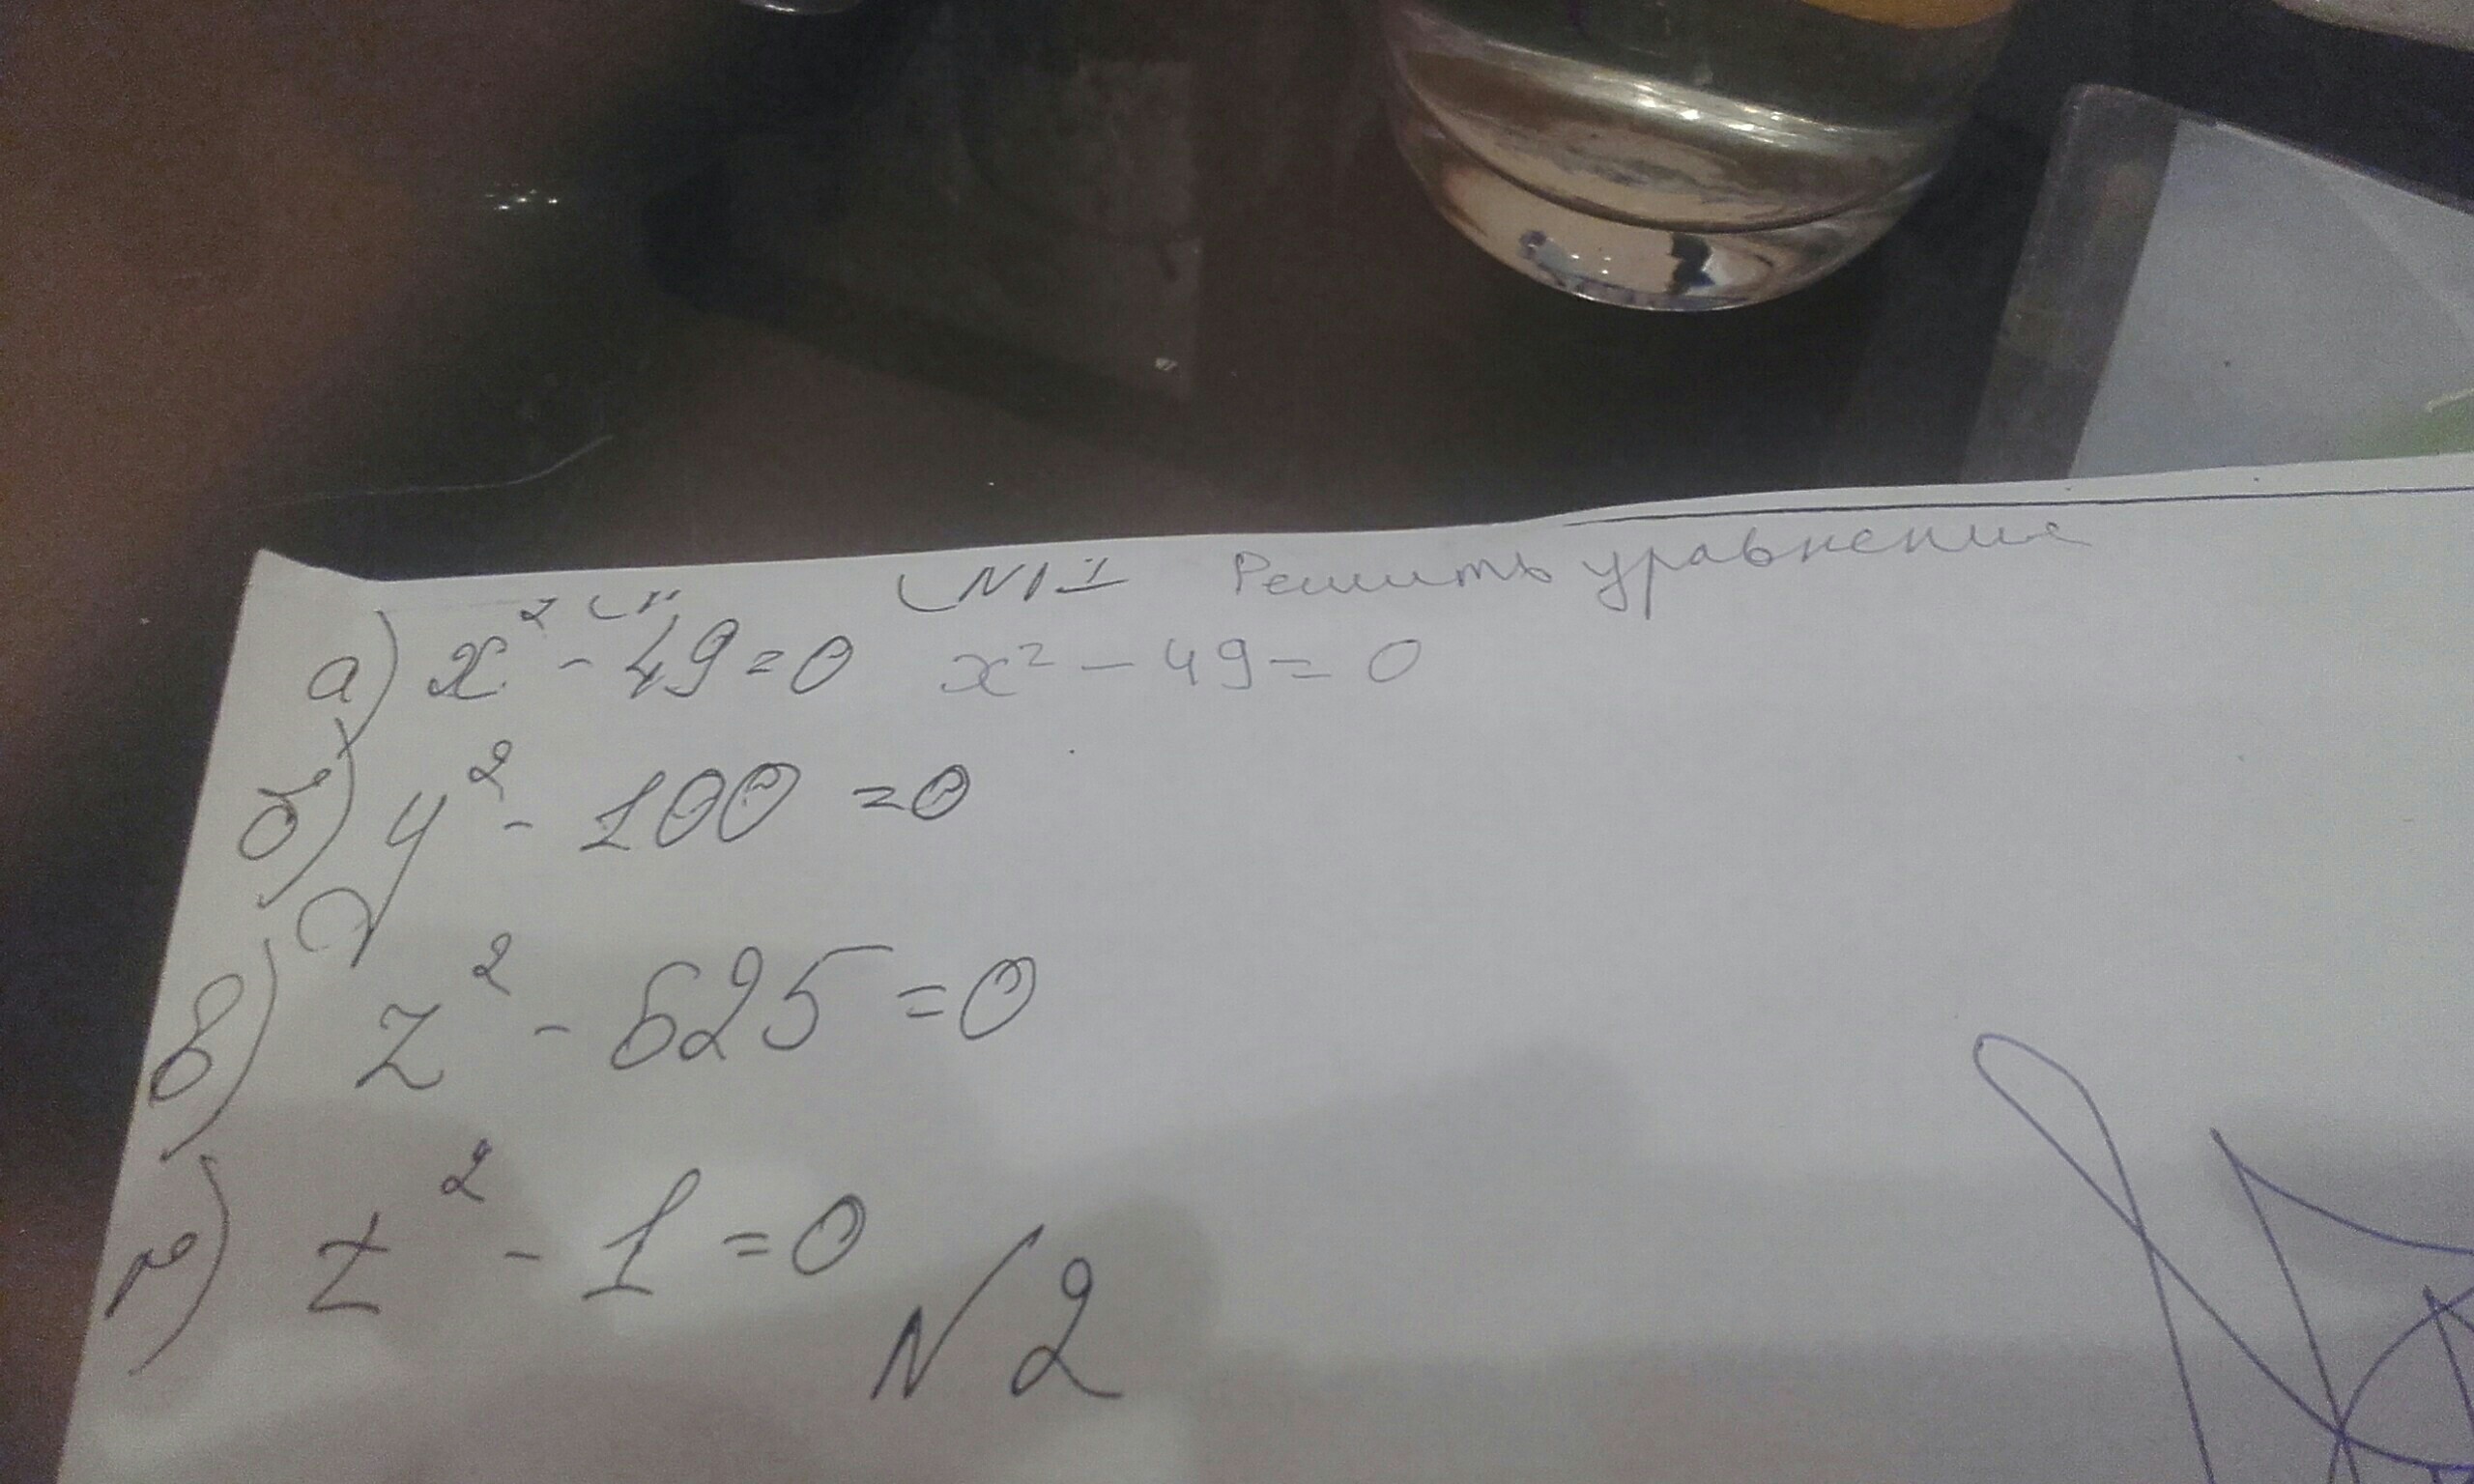 N1 Решить уравнение
а) x² - 49 = 0 x² - 49 = 0
б) y² - 100 = 0
в) z² - 625 = 0
г) z² - 1 = 0
N2